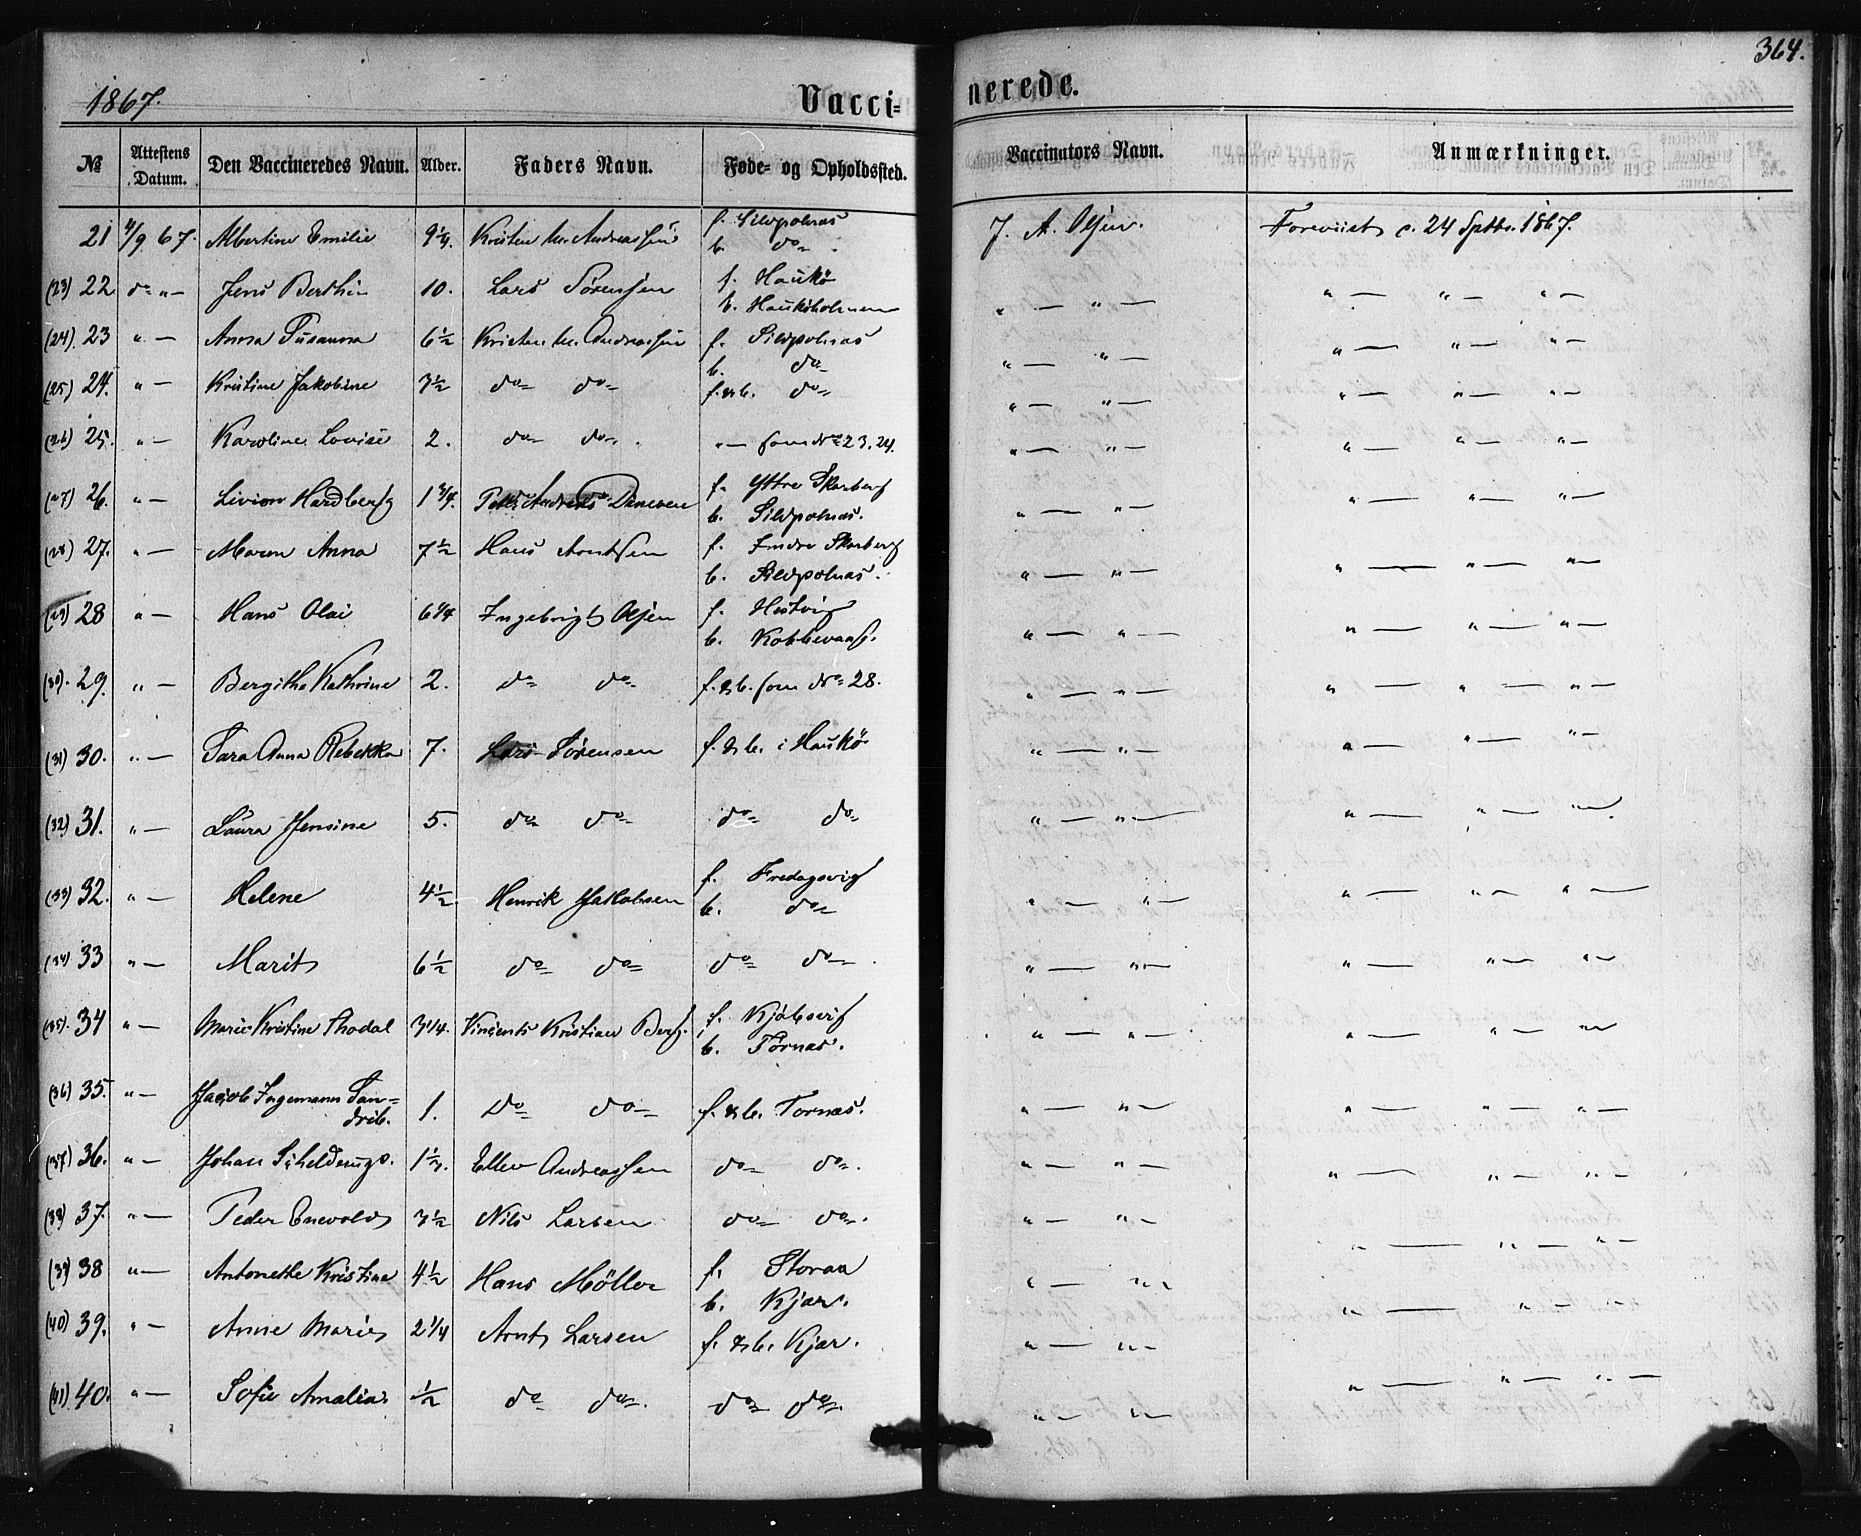 364.
1867. Vacci= nerede.
№ Attestens Datum. Den Vaccineredes Navn. Alder. Faders Navn. Føde- og Opholdssted. Vaccinators Navn. Anmærkninger.
21 4/9 67. Albertine Emilie 9 1/4. Kristen M. Andreassen f. Sildpolnæs J. A. Olsen. Foreviist c. 24 Septbr. 1867.
b. do
(23) 22 do "— Jens Berthin 10. Lars Sørensen f. Haukø " — " — " — " — " —
b. Haukøholmen
(24). 23 " — Anna Susanna 6 1/2 Kristen M. Andreassen f. Sildpolnæs " — " — " — " — " —
b. do
(25) 24. " — Kristine Jakobine 3 1/2 do do f. & b. do " — " — " — " — " —
(26) 25. " — Karoline Lovise 2. do do. " — som No 23. 24. " — " — " — " — " —
(27) 26. " — Hardberg 1 3/4. Andreas f. Yttre Skarberg " — " — " — " — " —
b. Sildpolnæs.
(28) 27. " — Maren Anna 7 1/2 Hans Arntsen f. Indre Skarberg " — " — " — " — " —
b. Sildpolnæs.
(29) 28 " — Hans Olai 6 1/4 Ingebrigt Olsen f. Hestvig " — " — " — " — " —
b. Kobbevaag.
(30). 29. " — Bergithe Kathrine 2. do do. f. & b. som No 28. " — " — " — " — " —
(31) 30. " — Sara Anna Rebekka 7. Lars Sørensen f. & b. i Haukø " — " — " — " — " —
(32) 31. " — Laura Jensine 5. do do do do " — " — " — " — " —
(33) 32. " — Helene 4 1/2. Henrik Jakobsen f. Fredagsvig " — " — " — " — " —
b. do
(34) 33 " — Marit 6 1/2 do do do do. " — " — " — " — " —
(35). 34 " — Marie Kristine Thodal 3 1/4. Vincents Kristian Berg. f. Kjøbsvig " — " — " — " — " —
b. Tornæs.
(36) 35. " — Jacob Ingemann San=
drib. 1. Do do f. & b. Tornæs. " — " — " — " — " —
(37) 36. " — Johan Schelderup. 1 1/2. Ellev Andreassen do do. " — " — " — " — " —
(38) 37. " — Peder Enevold 3 1/2 Nils Larsen do do. " — " — " — " — " —
(39) 38 " — Antonette Kristine 4 1/2 Hans Möller f. Storaa " — " — " — " — " —
b. Kjær.
(40) 39. " — Anne Marie 2 1/4 Arnt Larsen f. & b. Kjær. " — " — " — " — " —
(41). 40. " — Sofie Amalia 1/2 do do. do do. " — " — " — " — " —